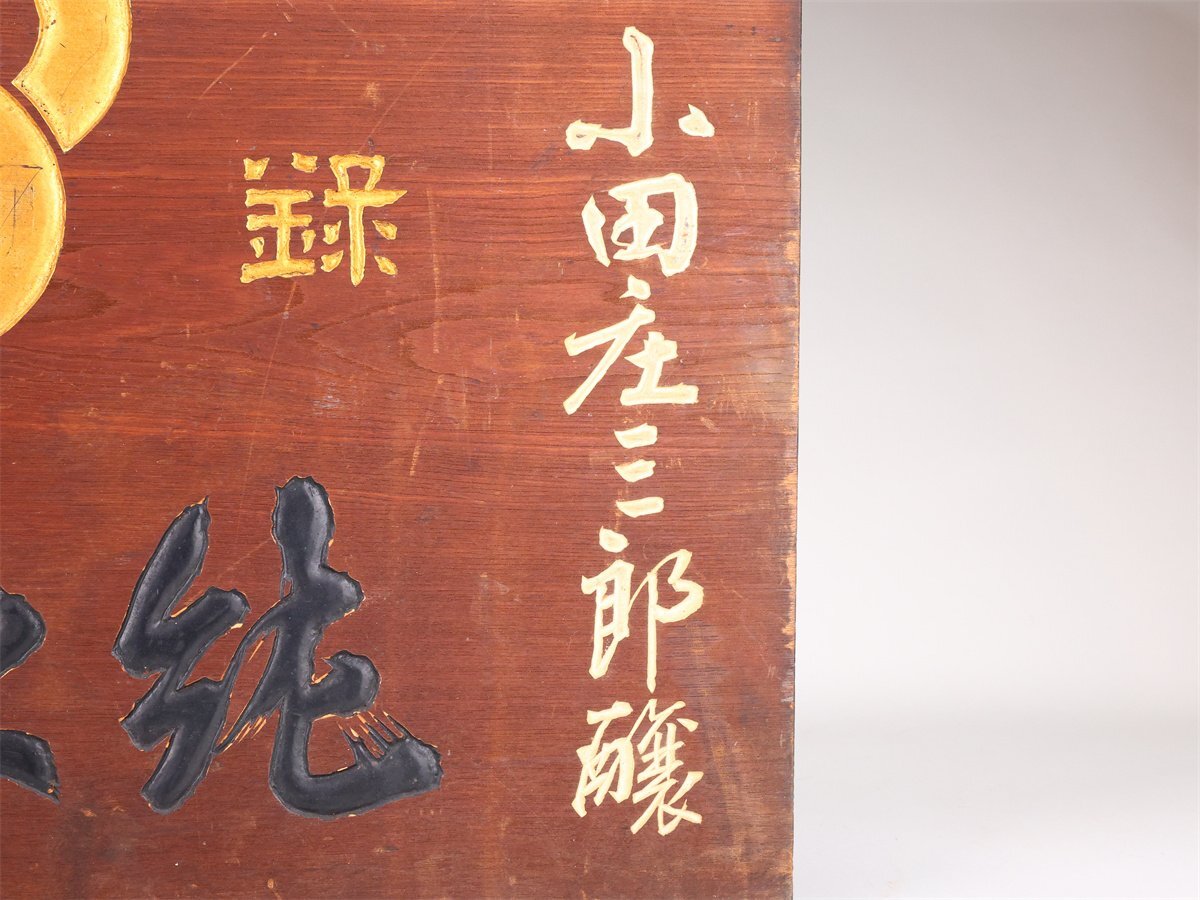 小田庄三郎醸
録
純